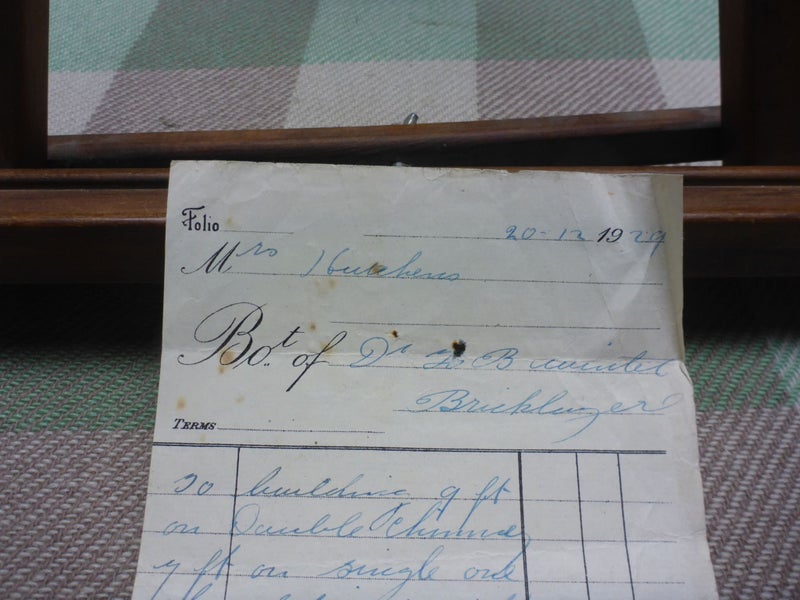 Folio
20-12 1929
Mrs Hutchens
Bot. of Dr to B
Bricklayer
TERMS
To building 9 ft
on Double Chimney
9 ft on single one